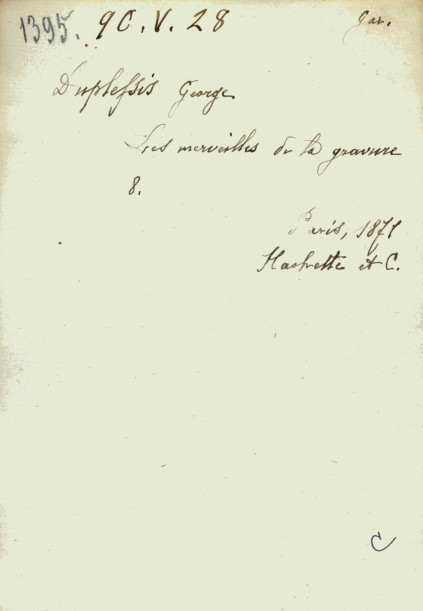 1395. 9C.V.28 Gar.
Duplessis George
Les merveilles de la gravure
8.
Paris, 1871
Hachette et C.
C